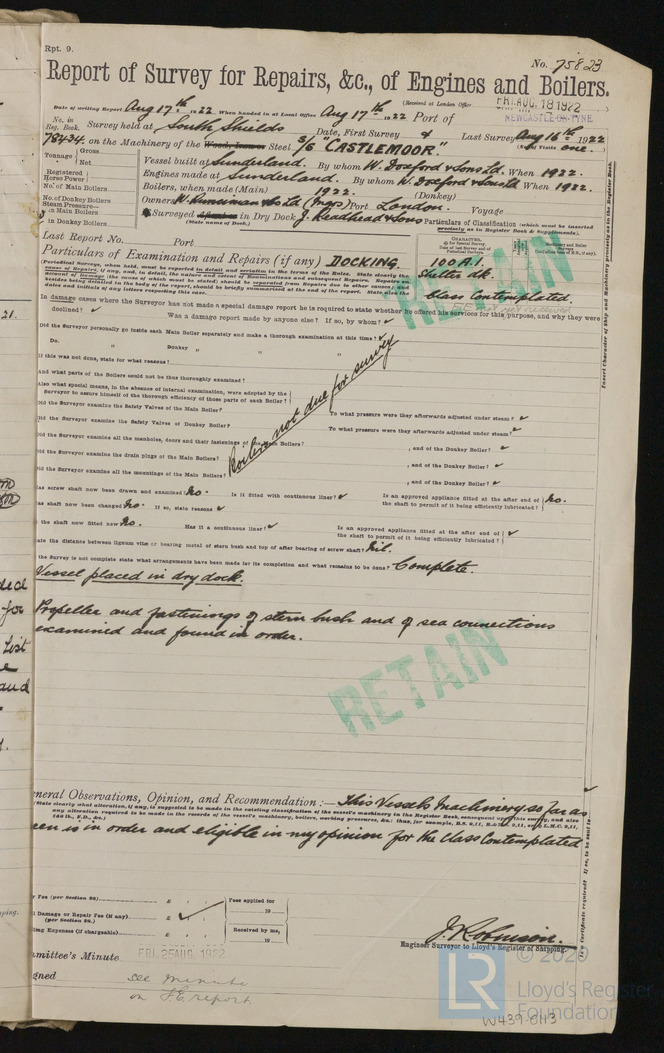 Rpt. 9.
No. 75823
Report of Survey for Repairs, &c., of Engines and Boilers.
(Received at London Office FRI. AUG. 18 1922
Date of writing Report Aug 17th 1922 When handed in at Local Office Aug 17th 1922 Port of NEWCASTLE-ON-TYNE
No. in Reg. Book. Survey held at South Shields Date, First Survey & Last Survey Aug 16th 1922
(No. of Visits one.)
78434. on the Machinery of the Wood, Iron or Steel S/S "CASTLEMOOR."
Tonnage Gross Net
Vessel built at Sunderland. By whom W. Doxford & Sons Ld. When 1922.
Registered Horse Power
Engines made at Sunderland. By whom W. Doxford & Sons Ld When 1922.
No. of Main Boilers
Boilers, when made (Main) 1922. (Donkey)
No. of Donkey Boilers
Owners W. Runciman & Co Ld (Mgrs) Port London. Voyage
Steam Pressure in Main Boilers
in Donkey Boilers
Surveyed Afloat or in Dry Dock J. Readhead & Sons
(State name of Dock.)
Particulars of Classification (which must be inserted precisely as in Register Book & Supplements).
Last Report No. Port
Particulars of Examination and Repairs (if any) DOCKING.
100 A.1.
Shelter dk.
Class Contemplated.
RETAIN
In damage cases where the Surveyor has not made a special damage report he is required to state whether he offered his services for this purpose, and why they were
declined? ✓ Was a damage report made by anyone else? If so, by whom? ✓
Did the Surveyor personally go inside each Main Boiler separately and make a thorough examination at this time? ✓
Do. " Donkey " " "
If this was not done, state for what reasons?
And what parts of the Boilers could not be thoroughly examined?
Also what special means, in the absence of internal examination, were adopted by the
Surveyor to assure himself of the thorough efficiency of those parts of each Boiler?
Boilers not due for survey
Did the Surveyor examine the Safety Valves of the Main Boiler? To what pressure were they afterwards adjusted under steam? ✓
Did the Surveyor examine the Safety Valves of Donkey Boiler? To what pressure were they afterwards adjusted under steam? ✓
Did the Surveyor examine all the manholes, doors and their fastenings of the Main Boilers? , and of the Donkey Boiler? ✓
Did the Surveyor examine the drain plugs of the Main Boilers? , and of the Donkey Boiler? ✓
Did the Surveyor examine all the mountings of the Main Boilers? , and of the Donkey Boiler? ✓
Has screw shaft now been drawn and examined No. Is it fitted with continuous liner? ✓ Is an approved appliance fitted at the after end of the shaft to permit of it being efficiently lubricated? No.
Has shaft now been changed No. If so, state reasons ✓
Is the shaft now fitted new No. Has it a continuous liner? ✓ Is an approved appliance fitted at the after end of the shaft to permit of it being efficiently lubricated? ✓
State the distance between lignum vitæ or bearing metal of stern bush and top of after bearing of screw shaft? Nil.
If the Survey is not complete state what arrangements have been made for its completion and what remains to be done? Complete.
Vessel placed in dry dock.
Propeller and fastenings of stern bush and of sea connections
examined and found in order.
RETAIN
General Observations, Opinion, and Recommendation:— This Vessels Machinery, so far as
seen is in order and eligible in my opinion for the Class Contemplated
Fee (per Section 28) £ : : Fees applied for 19
Damage or Repair Fee (if any) (per Section 28.) £ ✓
Travelling Expenses (if chargeable) £ : : Received by me, 19
J. Robinson.
Engineer Surveyor to Lloyd's Register of Shipping.
Committee's Minute FRI. 25 AUG. 1922
Assigned see minute
on F.E. report
© 2020
LR
Lloyd's Register
Foundation
W439-0113